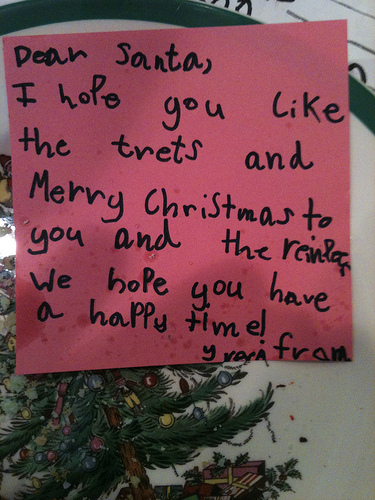 Dear Santa,
I hope you Like
the trets and
Merry Christmas to
you and the
We hope you have
a happy time!
from